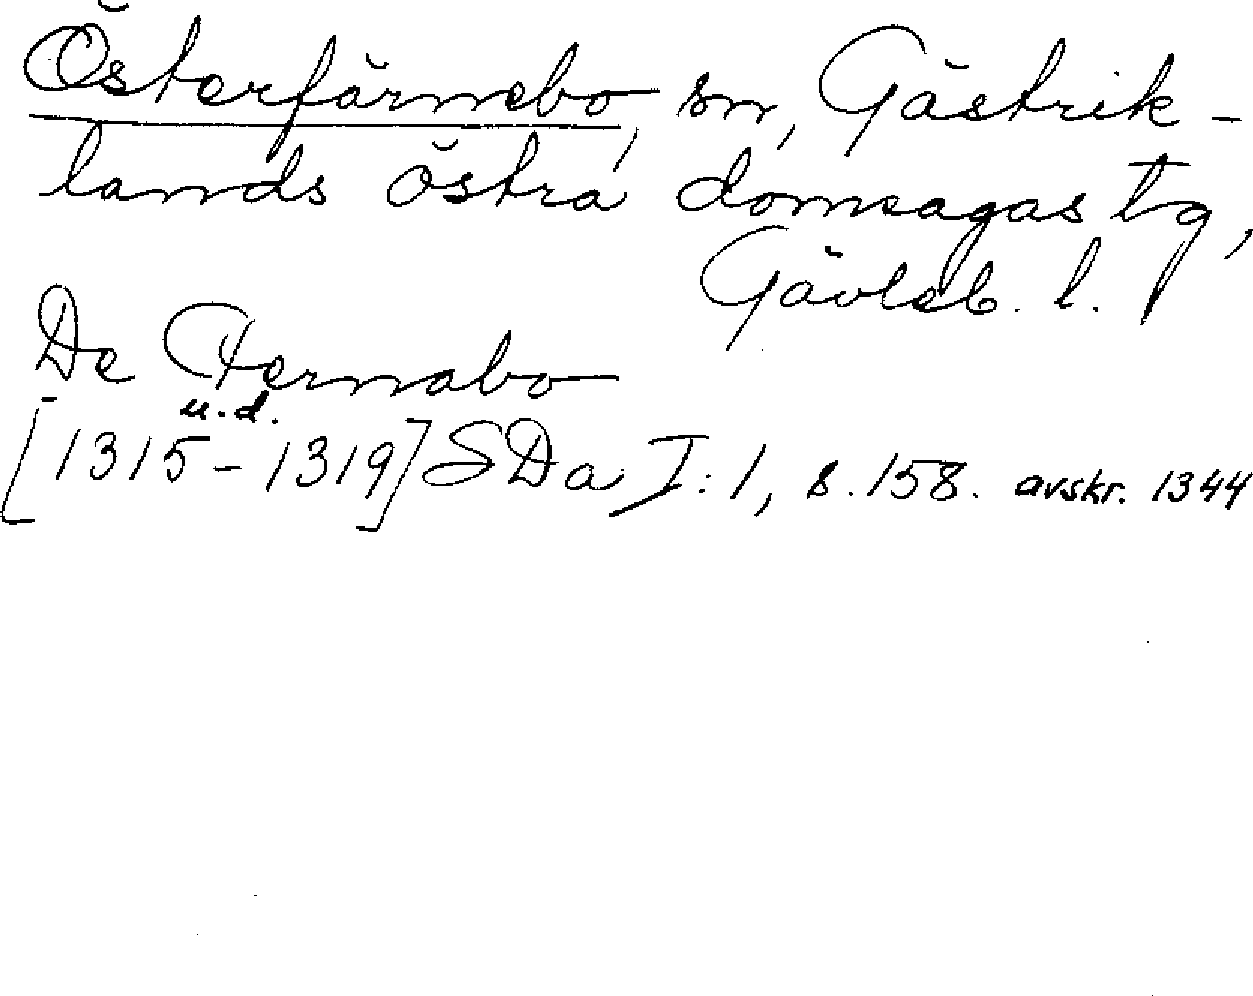 Österfärnebo, sn, Gästrik-
lands östra domsagas tg,
Gävleb. l.
De Fernabo
u.d.
[1315-1319] SDa I:1, s. 158. avskr. 1344